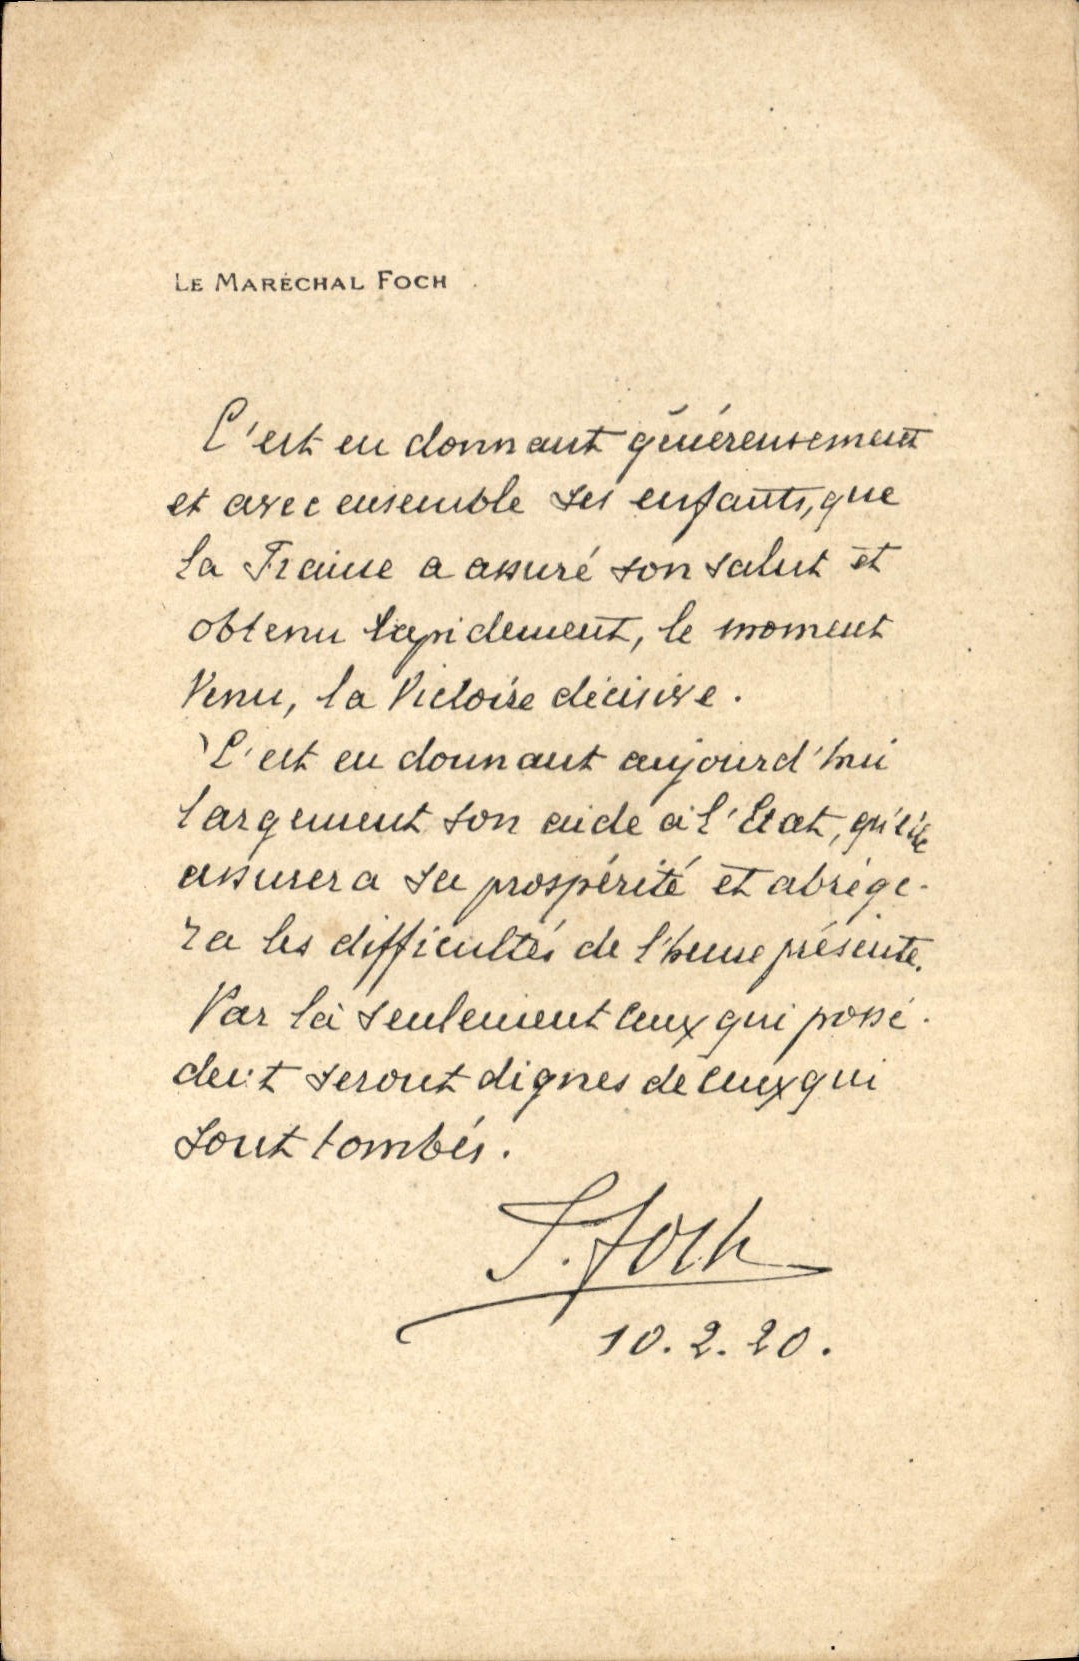 LE MARÉCHAL FOCH
C'est en donnant généreusement
et avec ensemble ses enfants, que
la France a assuré son salut et
obtenu rapidement, le moment
Venu, la Victoire décisive.
C'est en donnant aujourd'hui
largement son aide à l'Etat, qu'elle
assurera sa prospérité et abrége-
ra les difficultés de l'heure présente.
Par là seulement ceux qui possè-
dent seront dignes de ceux qui
sont tombés.
F. Foch
10.2.20.